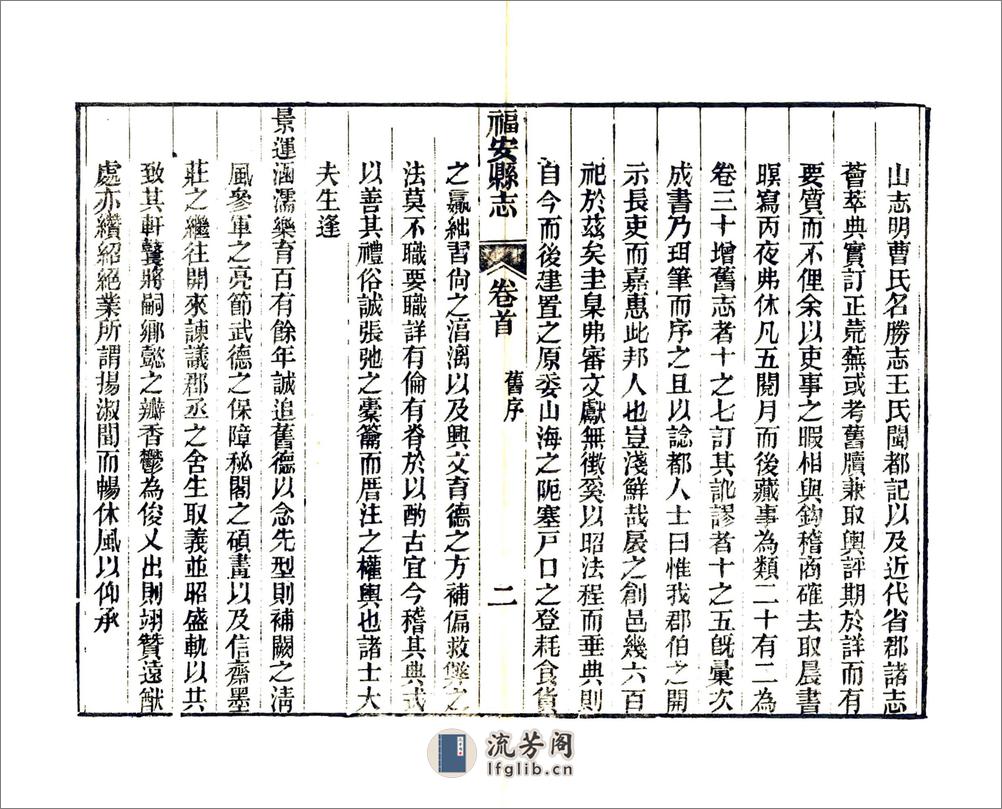 山志明曹氏名勝志王氏閩都記以及近代省郡諸志
薈萃典實訂正荒蕪或考舊牘兼取輿評期於詳而有
要質而不俚余以吏事之暇相與鈎稽商確去取晨書
暝寫丙夜弗休凡五閱月而後蕆事為類二十有二為
卷三十增舊志者十之七訂其訛謬者十之五既彙次
成書乃珥筆而序之且以諗都人士曰惟我郡伯之開
示長吏而嘉惠此邦人也豈淺鮮哉扆之創邑幾六百
祀於茲矣圭臬弗審文獻無徵奚以昭法程而垂典則
自今而後建置之原委山海之阨塞戸口之登耗食貨
福安縣志 卷首 舊序 二
之羸絀習尚之滀漓以及興文育德之方補偏救弊之
法莫不職要職詳有倫有脊於以酌古宜今稽其典式
以善其禮俗誠張弛之橐籥而厝注之權輿也諸士大
夫生逢
景運涵濡樂育百有餘年誠追舊德以念先型則補闕之清
風參軍之亮節武德之保障秘閣之碩畫以及信齋墨
莊之繼往開來諫議郡丞之舍生取義並昭盛軌以共
致其軒鼚將嗣鄉懿之瓣香鬱為俊乂出則翊贊遠猷
處亦纘紹絕業所謂揚淑聞而暢休風以仰承
流芳阁
lfglib.cn